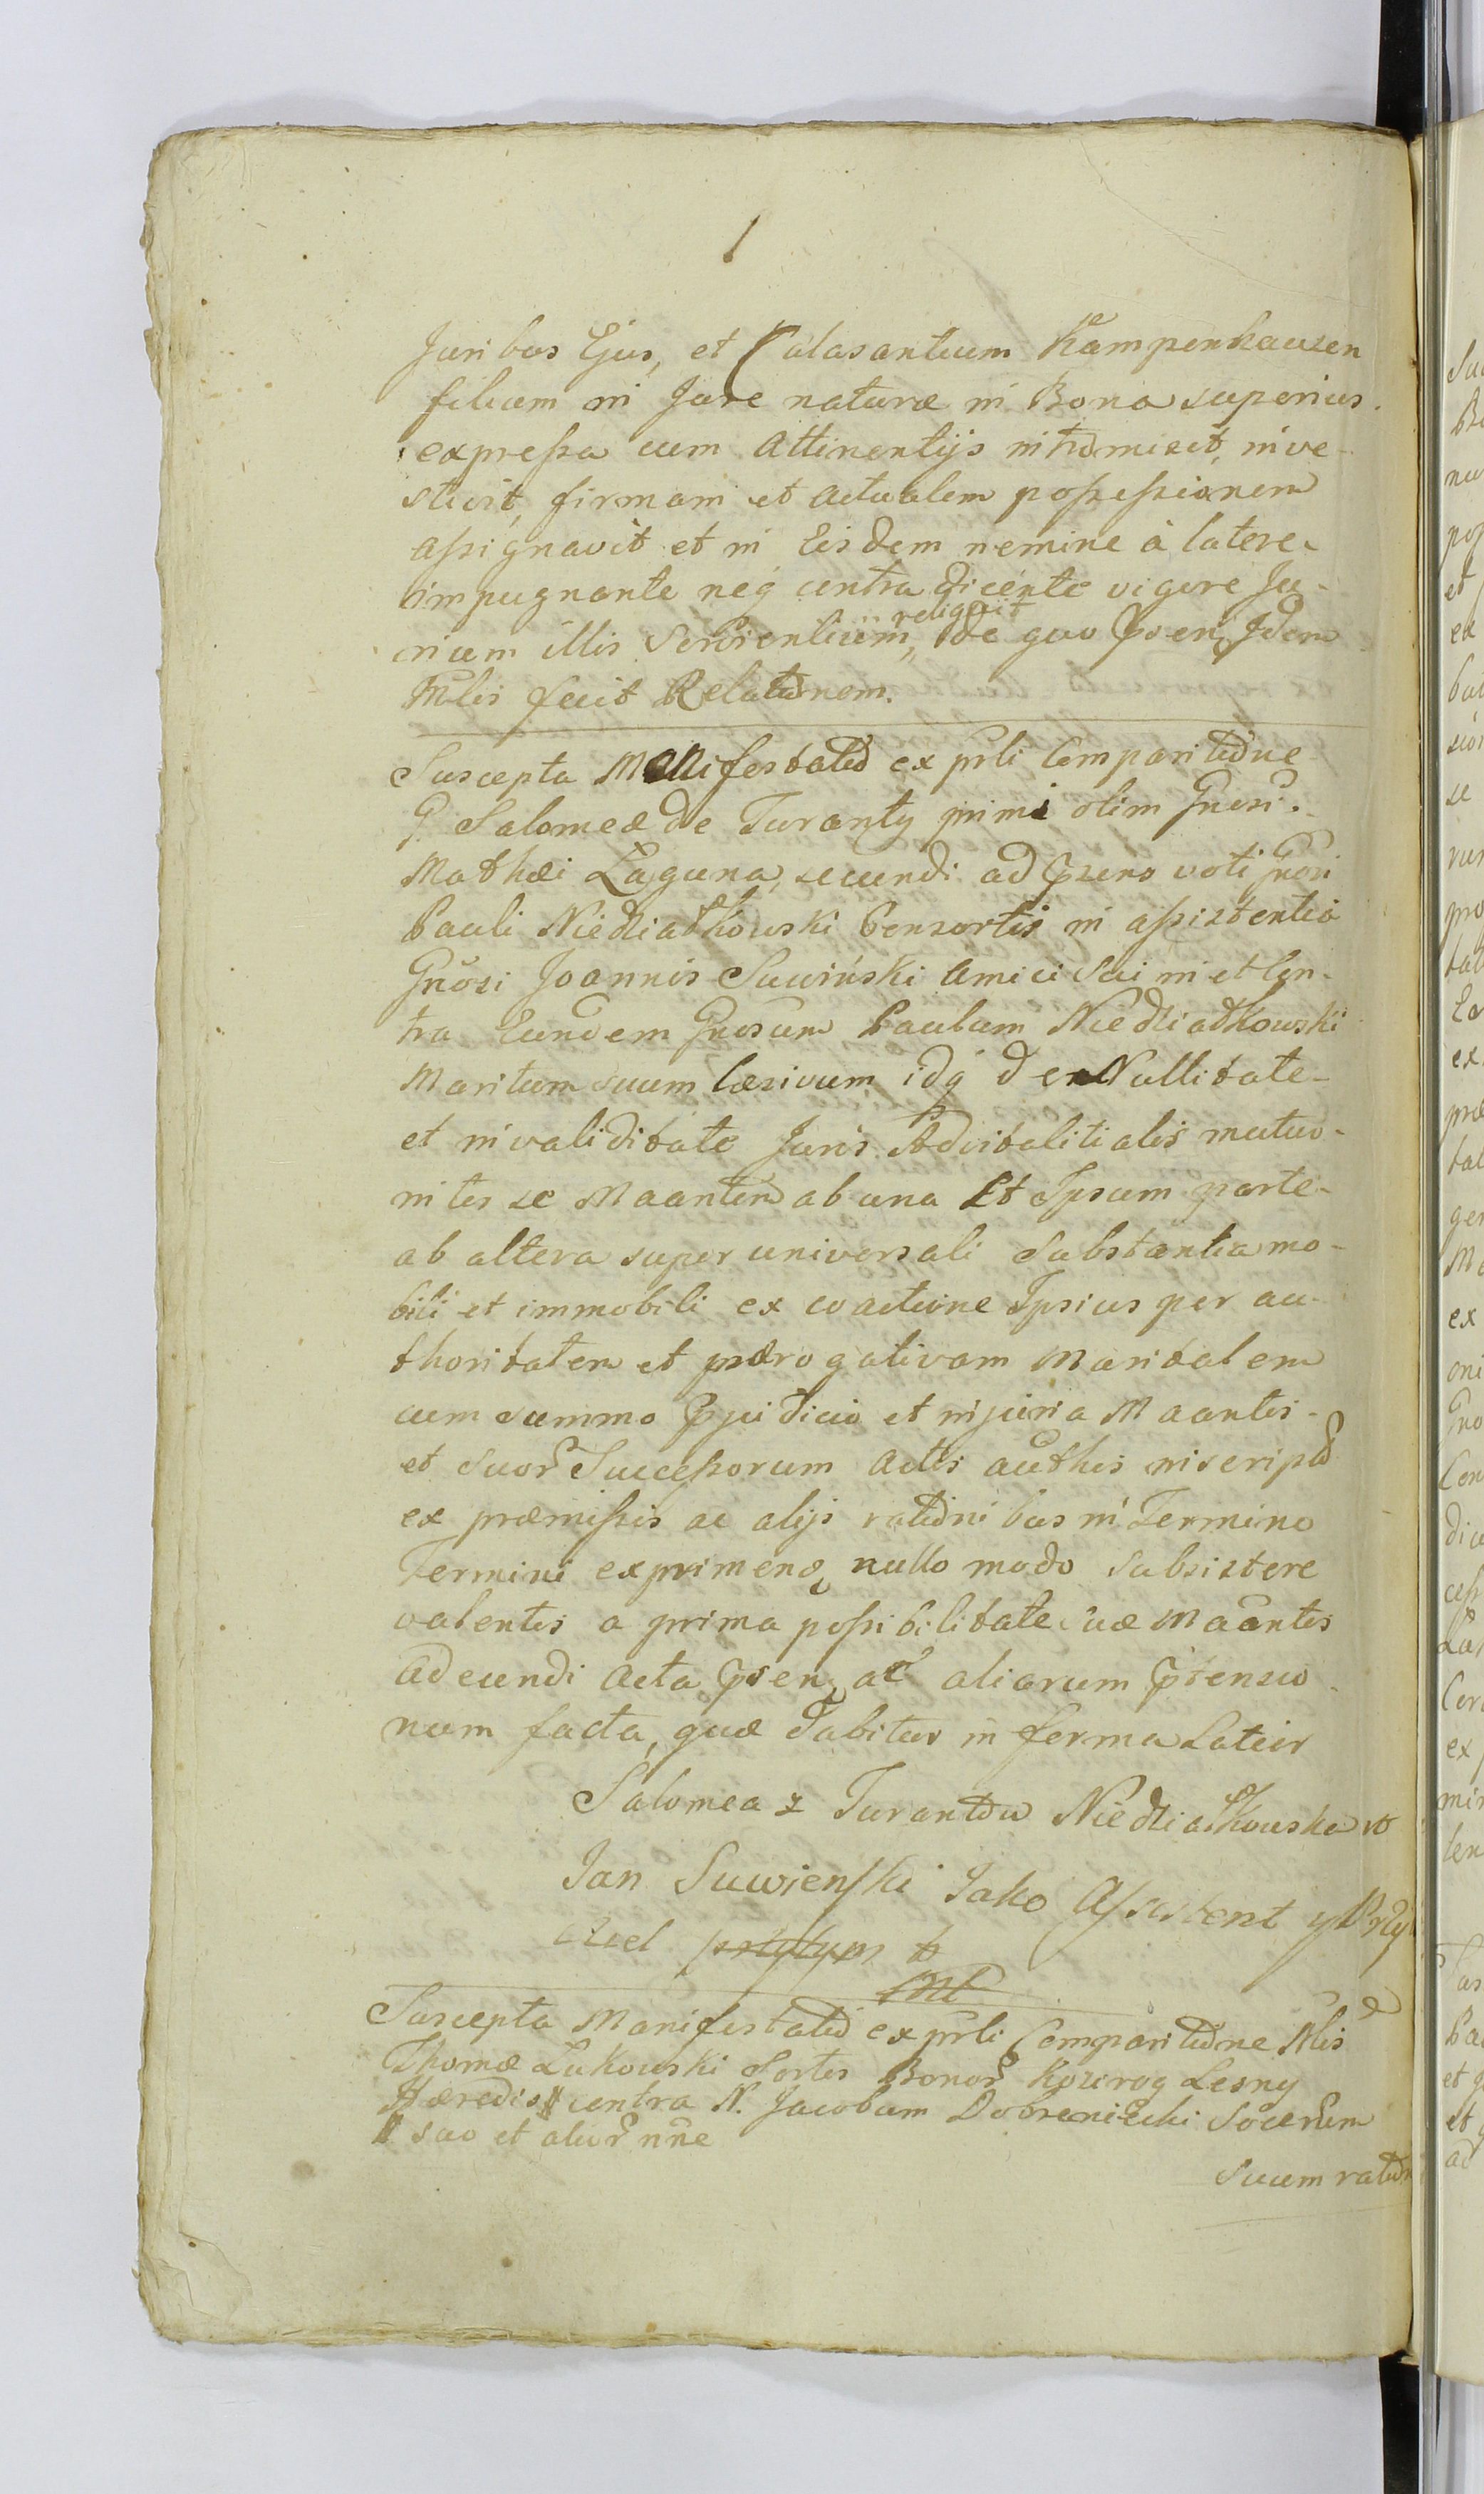 Juribus Ejus, et Calasantium Kampenhauzen
filium in Jure naturæ in Bona superius
expressa cum Attinentijs intromisit, inve-
stivit, firmam et actualem possessionem
assignavit et in Eisdem nemine à latere
impugnante neq contra dicente vigore Ju-
rium illis Servientium, reliquit de quo Psens Jdem
Mlis fecit Relatnem.
Suscepta Manifestatio ex prli Comparitione
G. Salomeæ de Turanty primi olim Gnosi
Mathæi Łaguna, secundi ad Psens voti Gnosi
Pauli Niedziałkowski Consortis in assistentia
Gnosi Joannis Suwiński Amici Sui in et Con-
tra Eundem Gnosum Paulum Niedziałkowski
Maritum suum læsivum idq de Nullitate
et invaliditate Juris Advitalitialis mutuo
inter se Maantem ab una Et Ipsum parte
ab altera super universali Substantia mo-
bili et immobili ex coactione Ipsius per au-
thoritatem et prærogativam Maritalem
cum summo Pjudicio et injuria Maantis
et Suor Successorum Actis authis inscripti
ex præmissis ac alijs rationibus in Termino
Termini exprimen nullo modo Subsistere
valentis a prima possibilitate suæ Maantis
adeundi Acta Psen ac aliarum Ptensio-
num facta, quæ dabitur in forma Latior
Salomea z Turantów Niedziałkowska
Jan Suwienski Jako Assistent y Przy
aciel
Suscepta Manifestatio ex prli Comparitione Mlis
Thomæ Łukowski Sortis Bonor Kozirog Lesny
Hæredis contra N. Jacobum Dobrzeniecki Socerum
suo et alior nne
Suum ratione